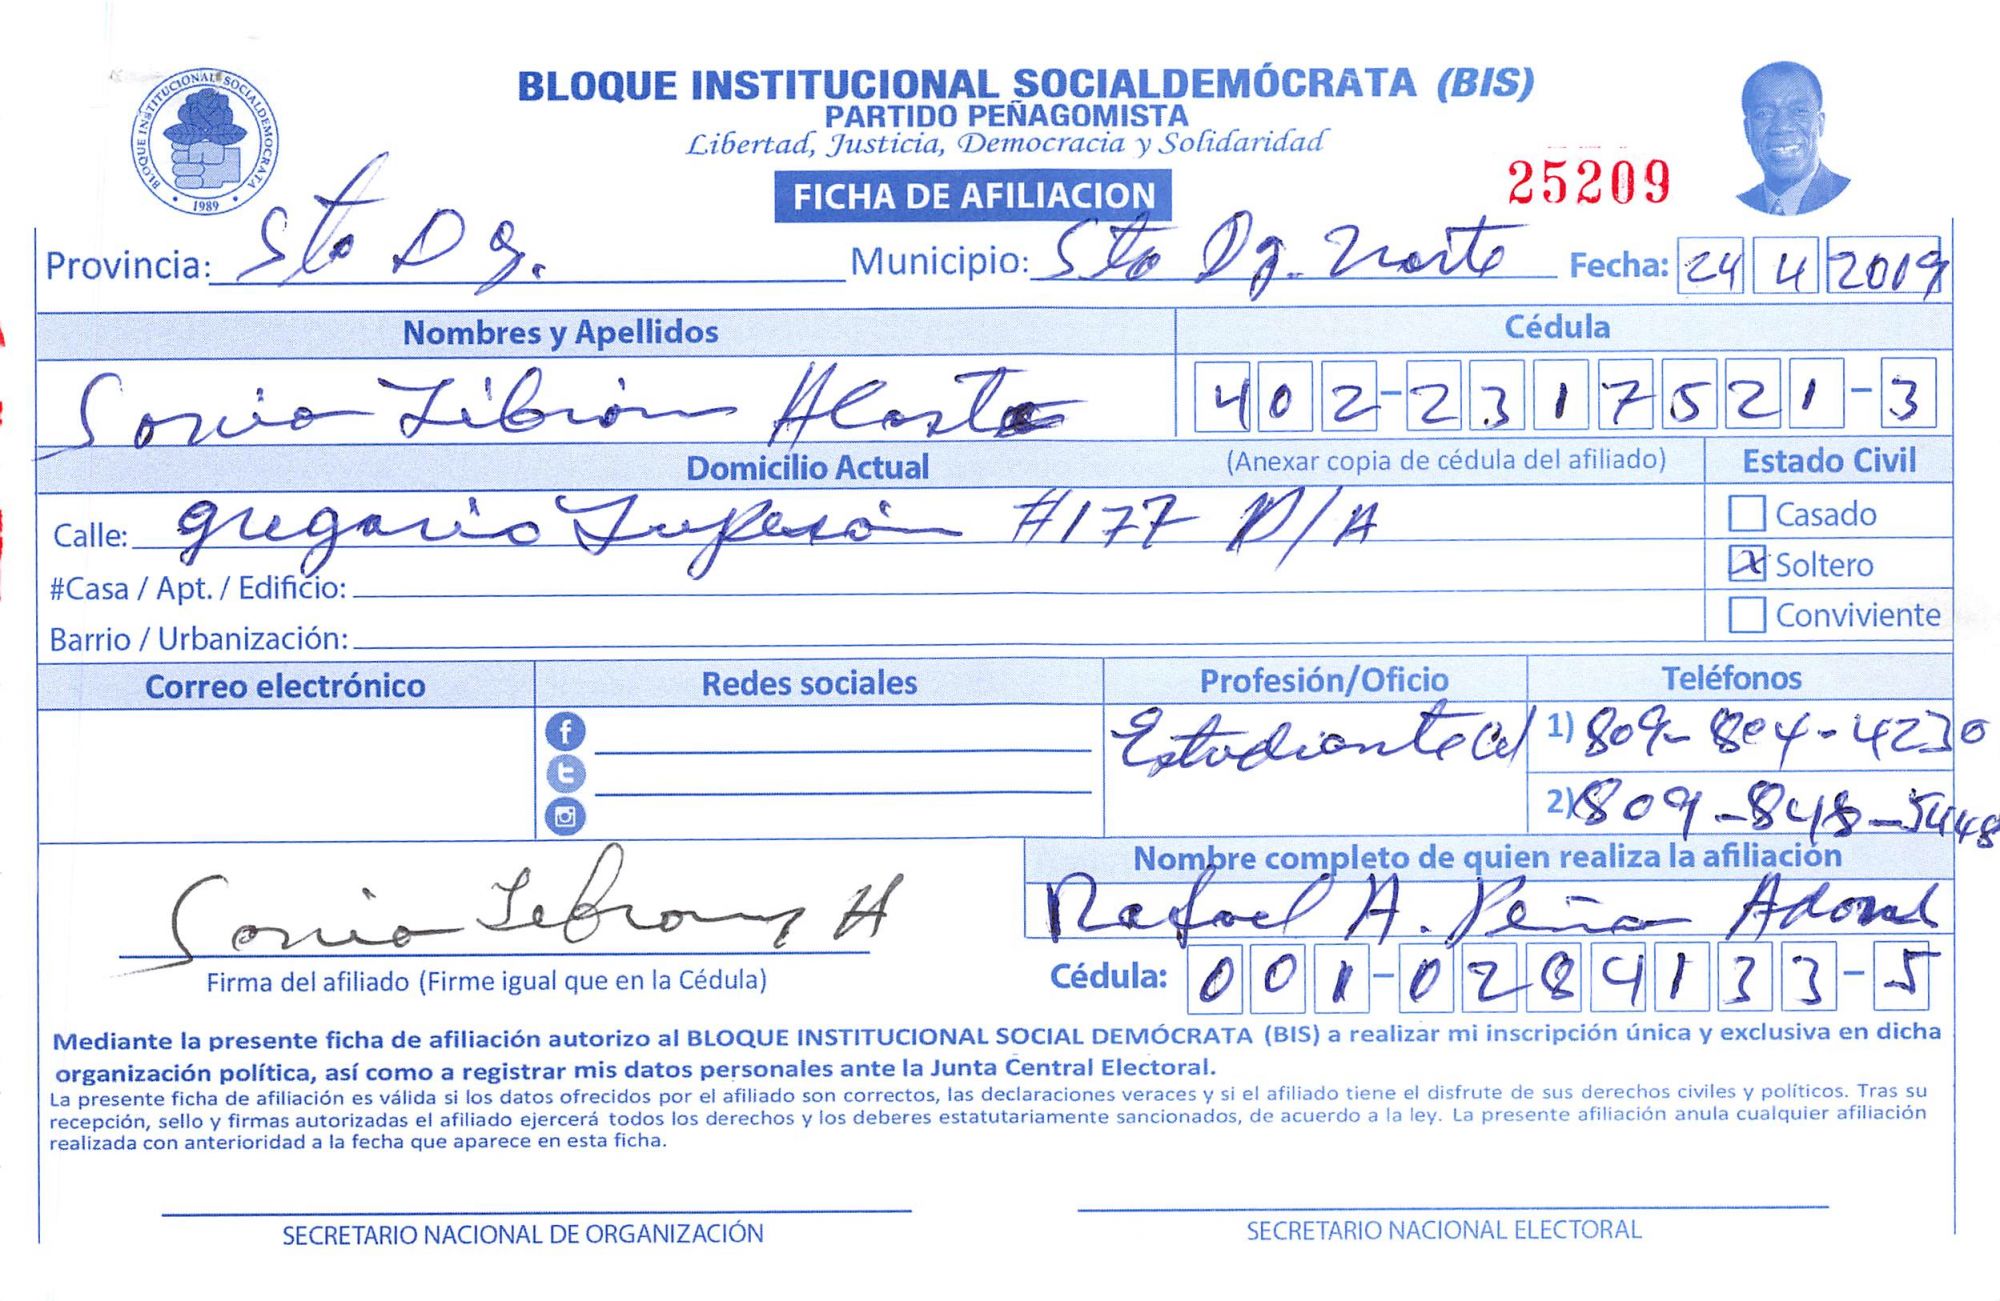 BLOQUE INSTITUCIONAL SOCIALDEMOCRATA
1989
BLOQUE INSTITUCIONAL SOCIALDEMÓCRATA (BIS)
PARTIDO PEÑAGOMISTA
Libertad, Justicia, Democracia y Solidaridad
FICHA DE AFILIACION
25209
Provincia: Sto Dg. Municipio: Sto Dg. Norte Fecha: 24 4 2019
Nombres y Apellidos Cédula
Sonia Librón Acosta 402-2317521-3
Domicilio Actual (Anexar copia de cédula del afiliado) Estado Civil
Calle: gregorio Luperón #177 P/A
Casado
X Soltero
#Casa / Apt. / Edificio:
Conviviente
Barrio / Urbanización:
Correo electrónico Redes sociales Profesión/Oficio Teléfonos
Estudiante 1) 809-804-4230
2) 809-848-5448
Nombre completo de quien realiza la afiliación
Sonia Lebron A Rafael A. Peña
Firma del afiliado (Firme igual que en la Cédula) Cédula: 001-0284133-5
Mediante la presente ficha de afiliación autorizo al BLOQUE INSTITUCIONAL SOCIAL DEMÓCRATA (BIS) a realizar mi inscripción única y exclusiva en dicha
organización política, así como a registrar mis datos personales ante la Junta Central Electoral.
La presente ficha de afiliación es válida si los datos ofrecidos por el afiliado son correctos, las declaraciones veraces y si el afiliado tiene el disfrute de sus derechos civiles y políticos. Tras su
recepción, sello y firmas autorizadas el afiliado ejercerá todos los derechos y los deberes estatutariamente sancionados, de acuerdo a la ley. La presente afiliación anula cualquier afiliación
realizada con anterioridad a la fecha que aparece en esta ficha.
SECRETARIO NACIONAL DE ORGANIZACIÓN SECRETARIO NACIONAL ELECTORAL